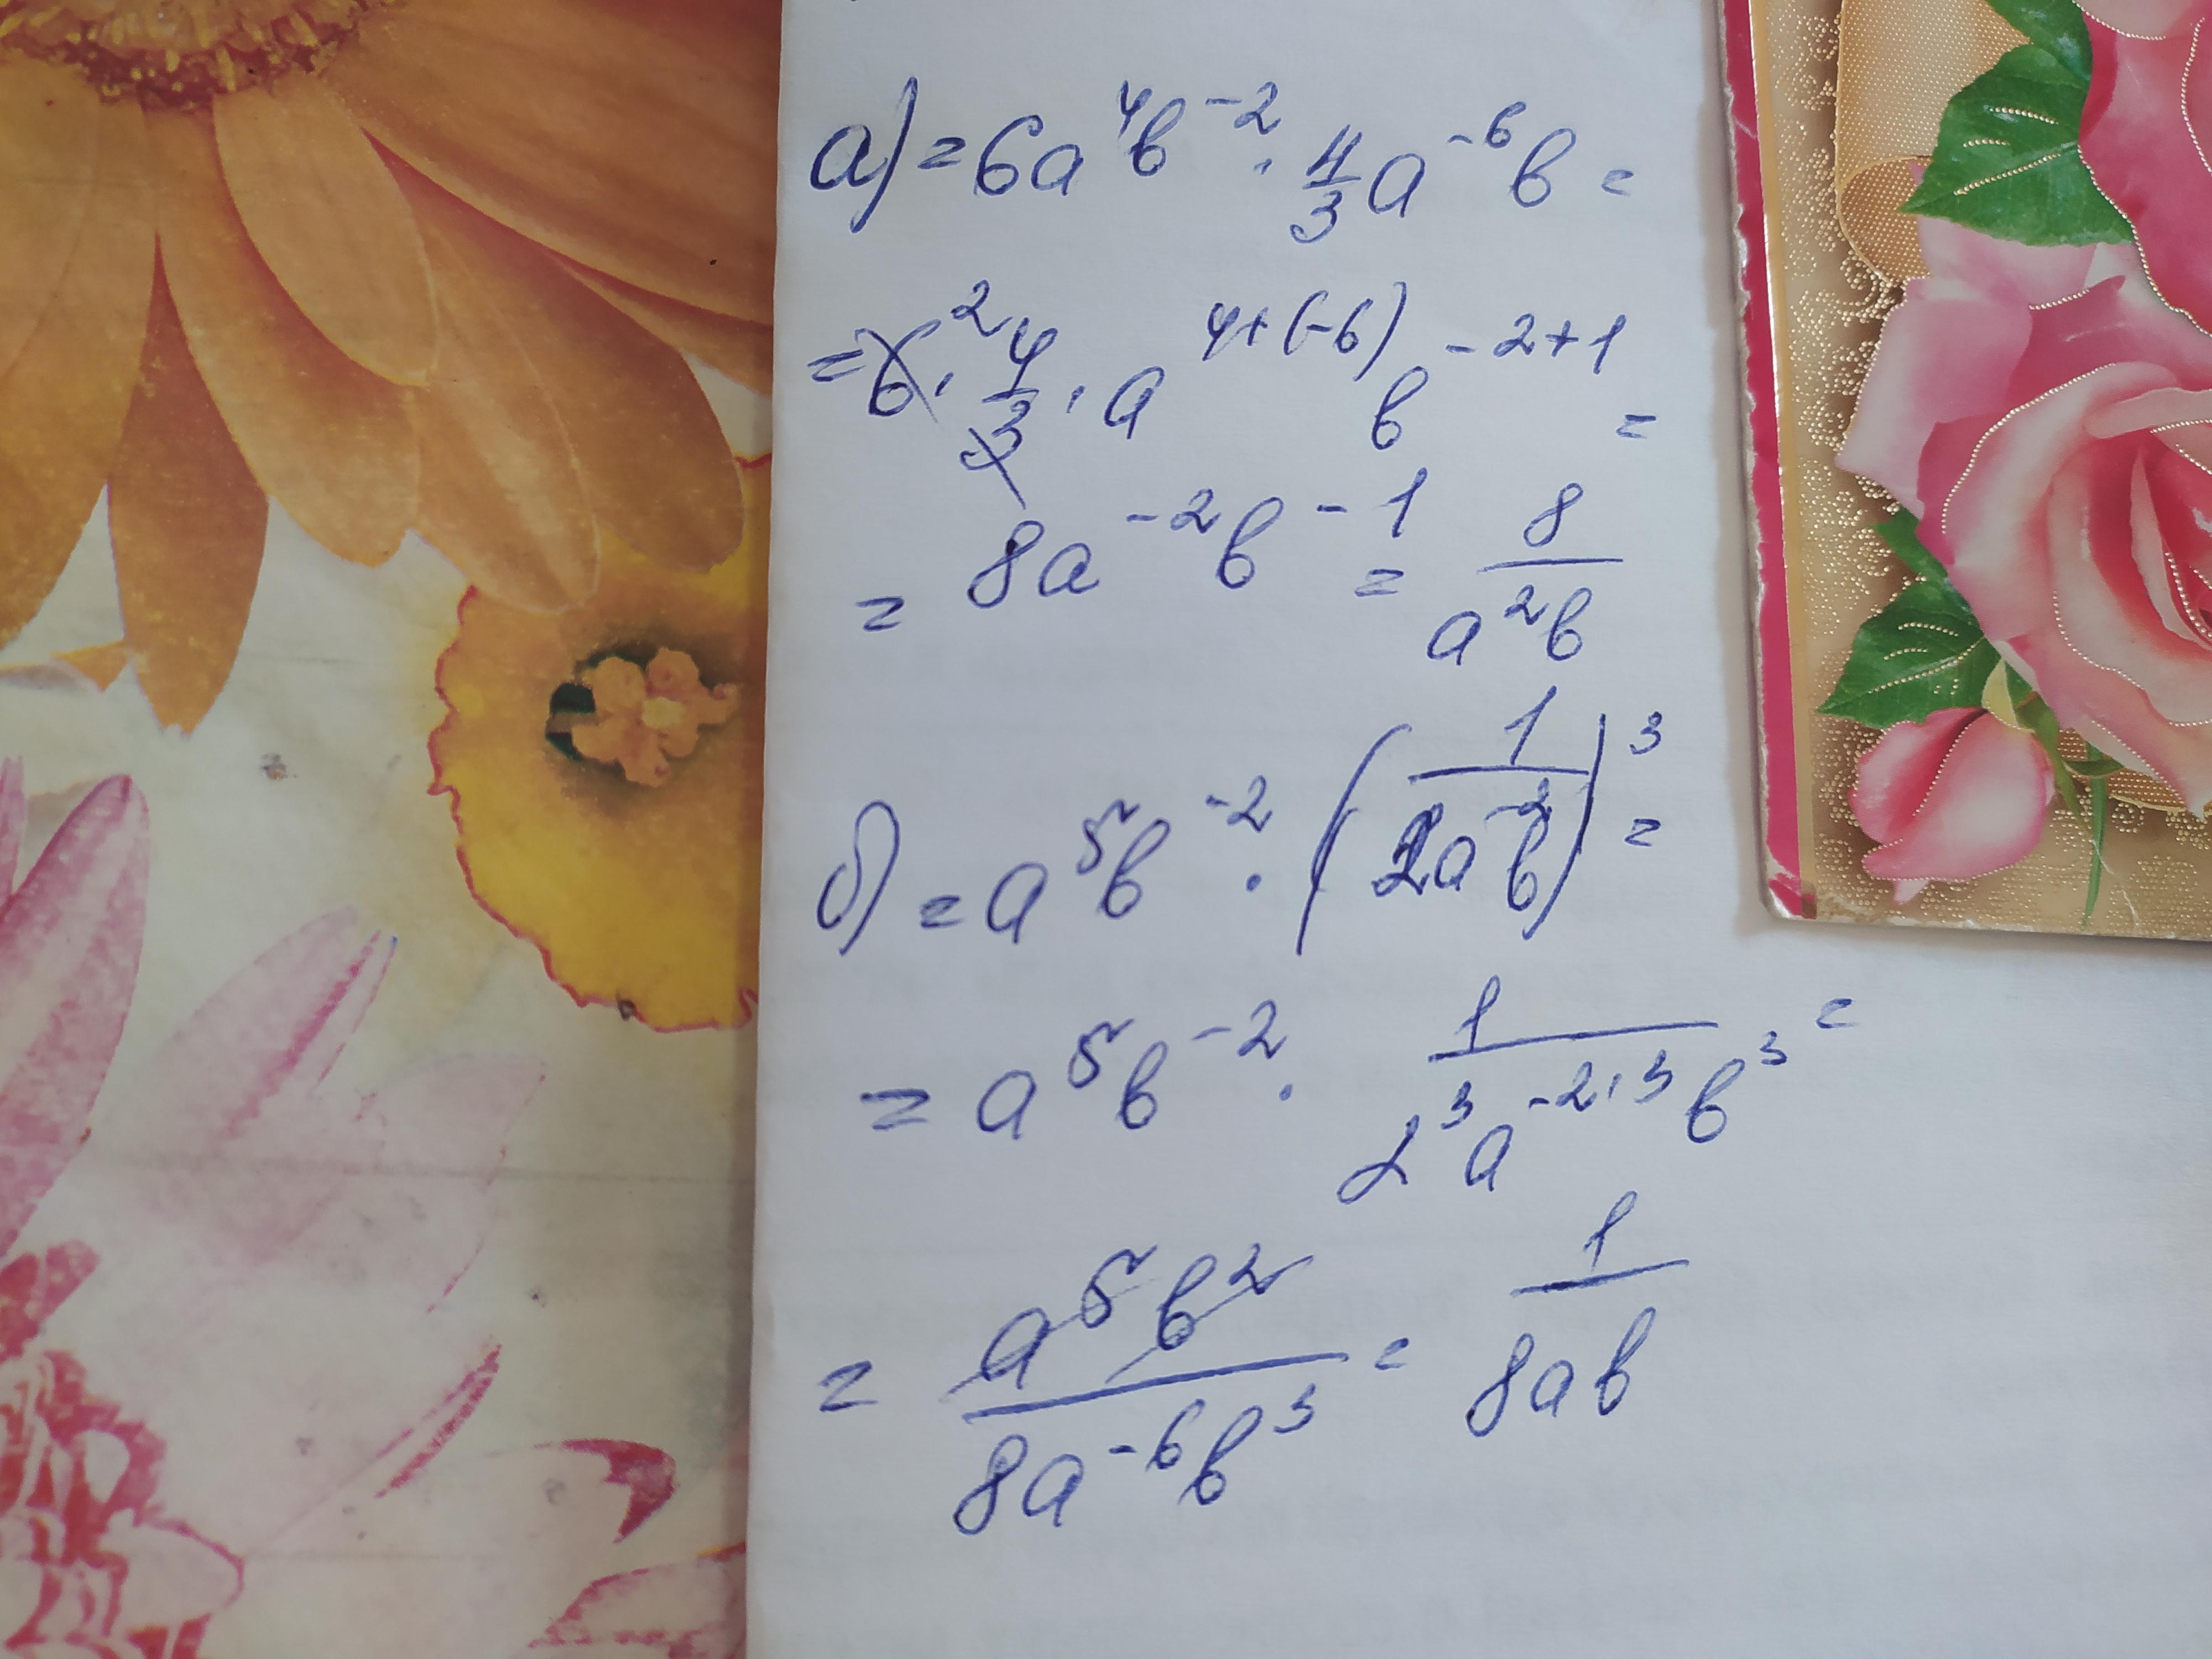 а) = 6a⁴b⁻² · 4/3 a⁻⁶b =
= 6 ·² 4/3 · a⁴⁺⁽⁻⁶⁾ b⁻²⁺¹ =
= 8a⁻²b⁻¹ = 8/a²b
б) = a⁵b⁻² · (1/2a⁻²b)³ =
= a⁵b⁻² · 1/2³a⁻²·³b³ =
= a⁵b²/8a⁻⁶b³ = 1/8ab